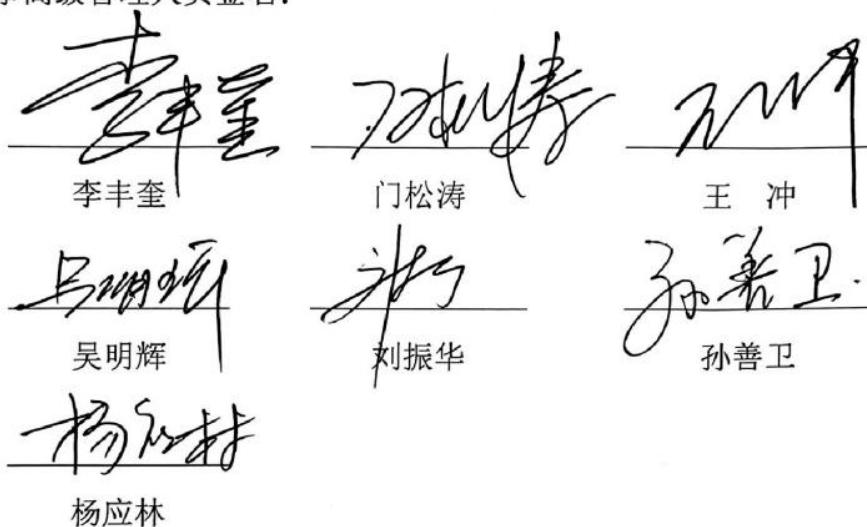 高级管理人员签名：
李丰奎 门松涛 王 冲
吴明辉 刘振华 孙善卫
杨应林